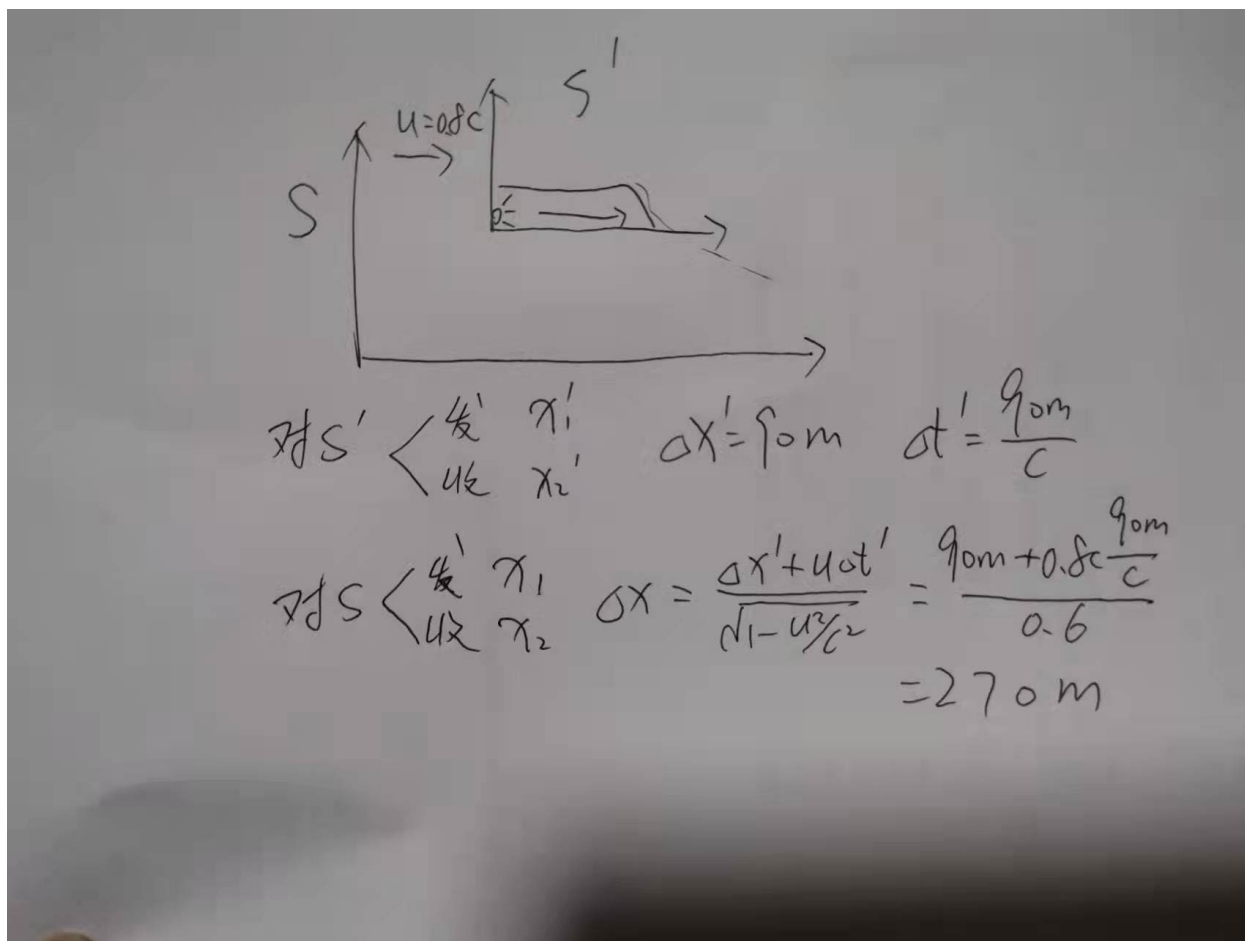 S'
u=0.8c
S
对S' 发 x₁' Δx'=90m Δt'=90m/c
收 x₂'
对S 发 x₁ Δx = (Δx'+uΔt')/√(1-u²/c²) = (90m+0.8c 90m/c)/0.6
收 x₂
=270m